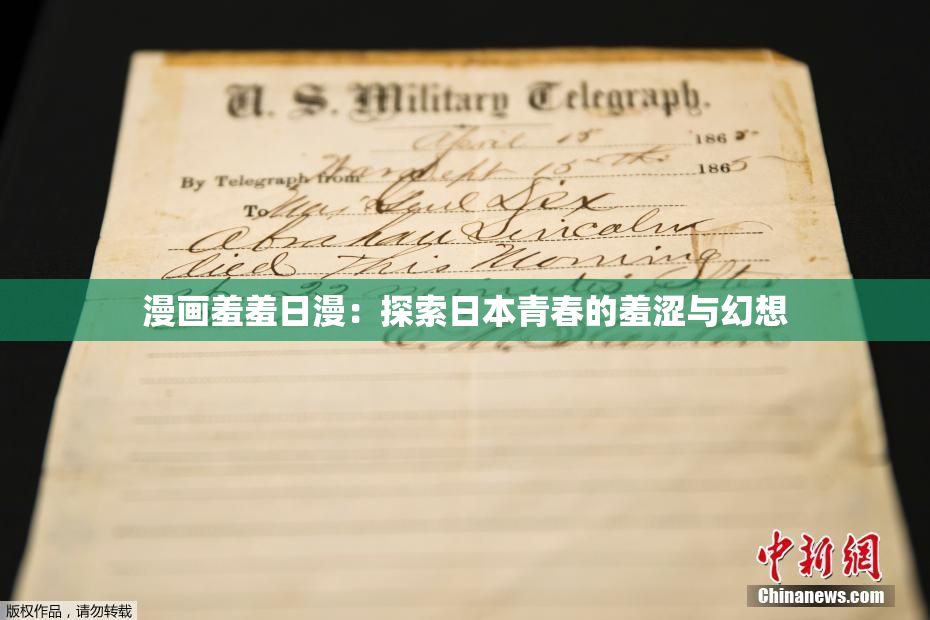 U. S. Military Telegraph.
April 15 1865
By Telegraph from War Dept 15th 1865
To Maj Genl Dix
Abraham Lincoln
died This Morning
at 22 minutes after
漫画羞羞日漫：探索日本青春的羞涩与幻想
E. M. Stanton
中新网
Chinanews.com
版权作品，请勿转载